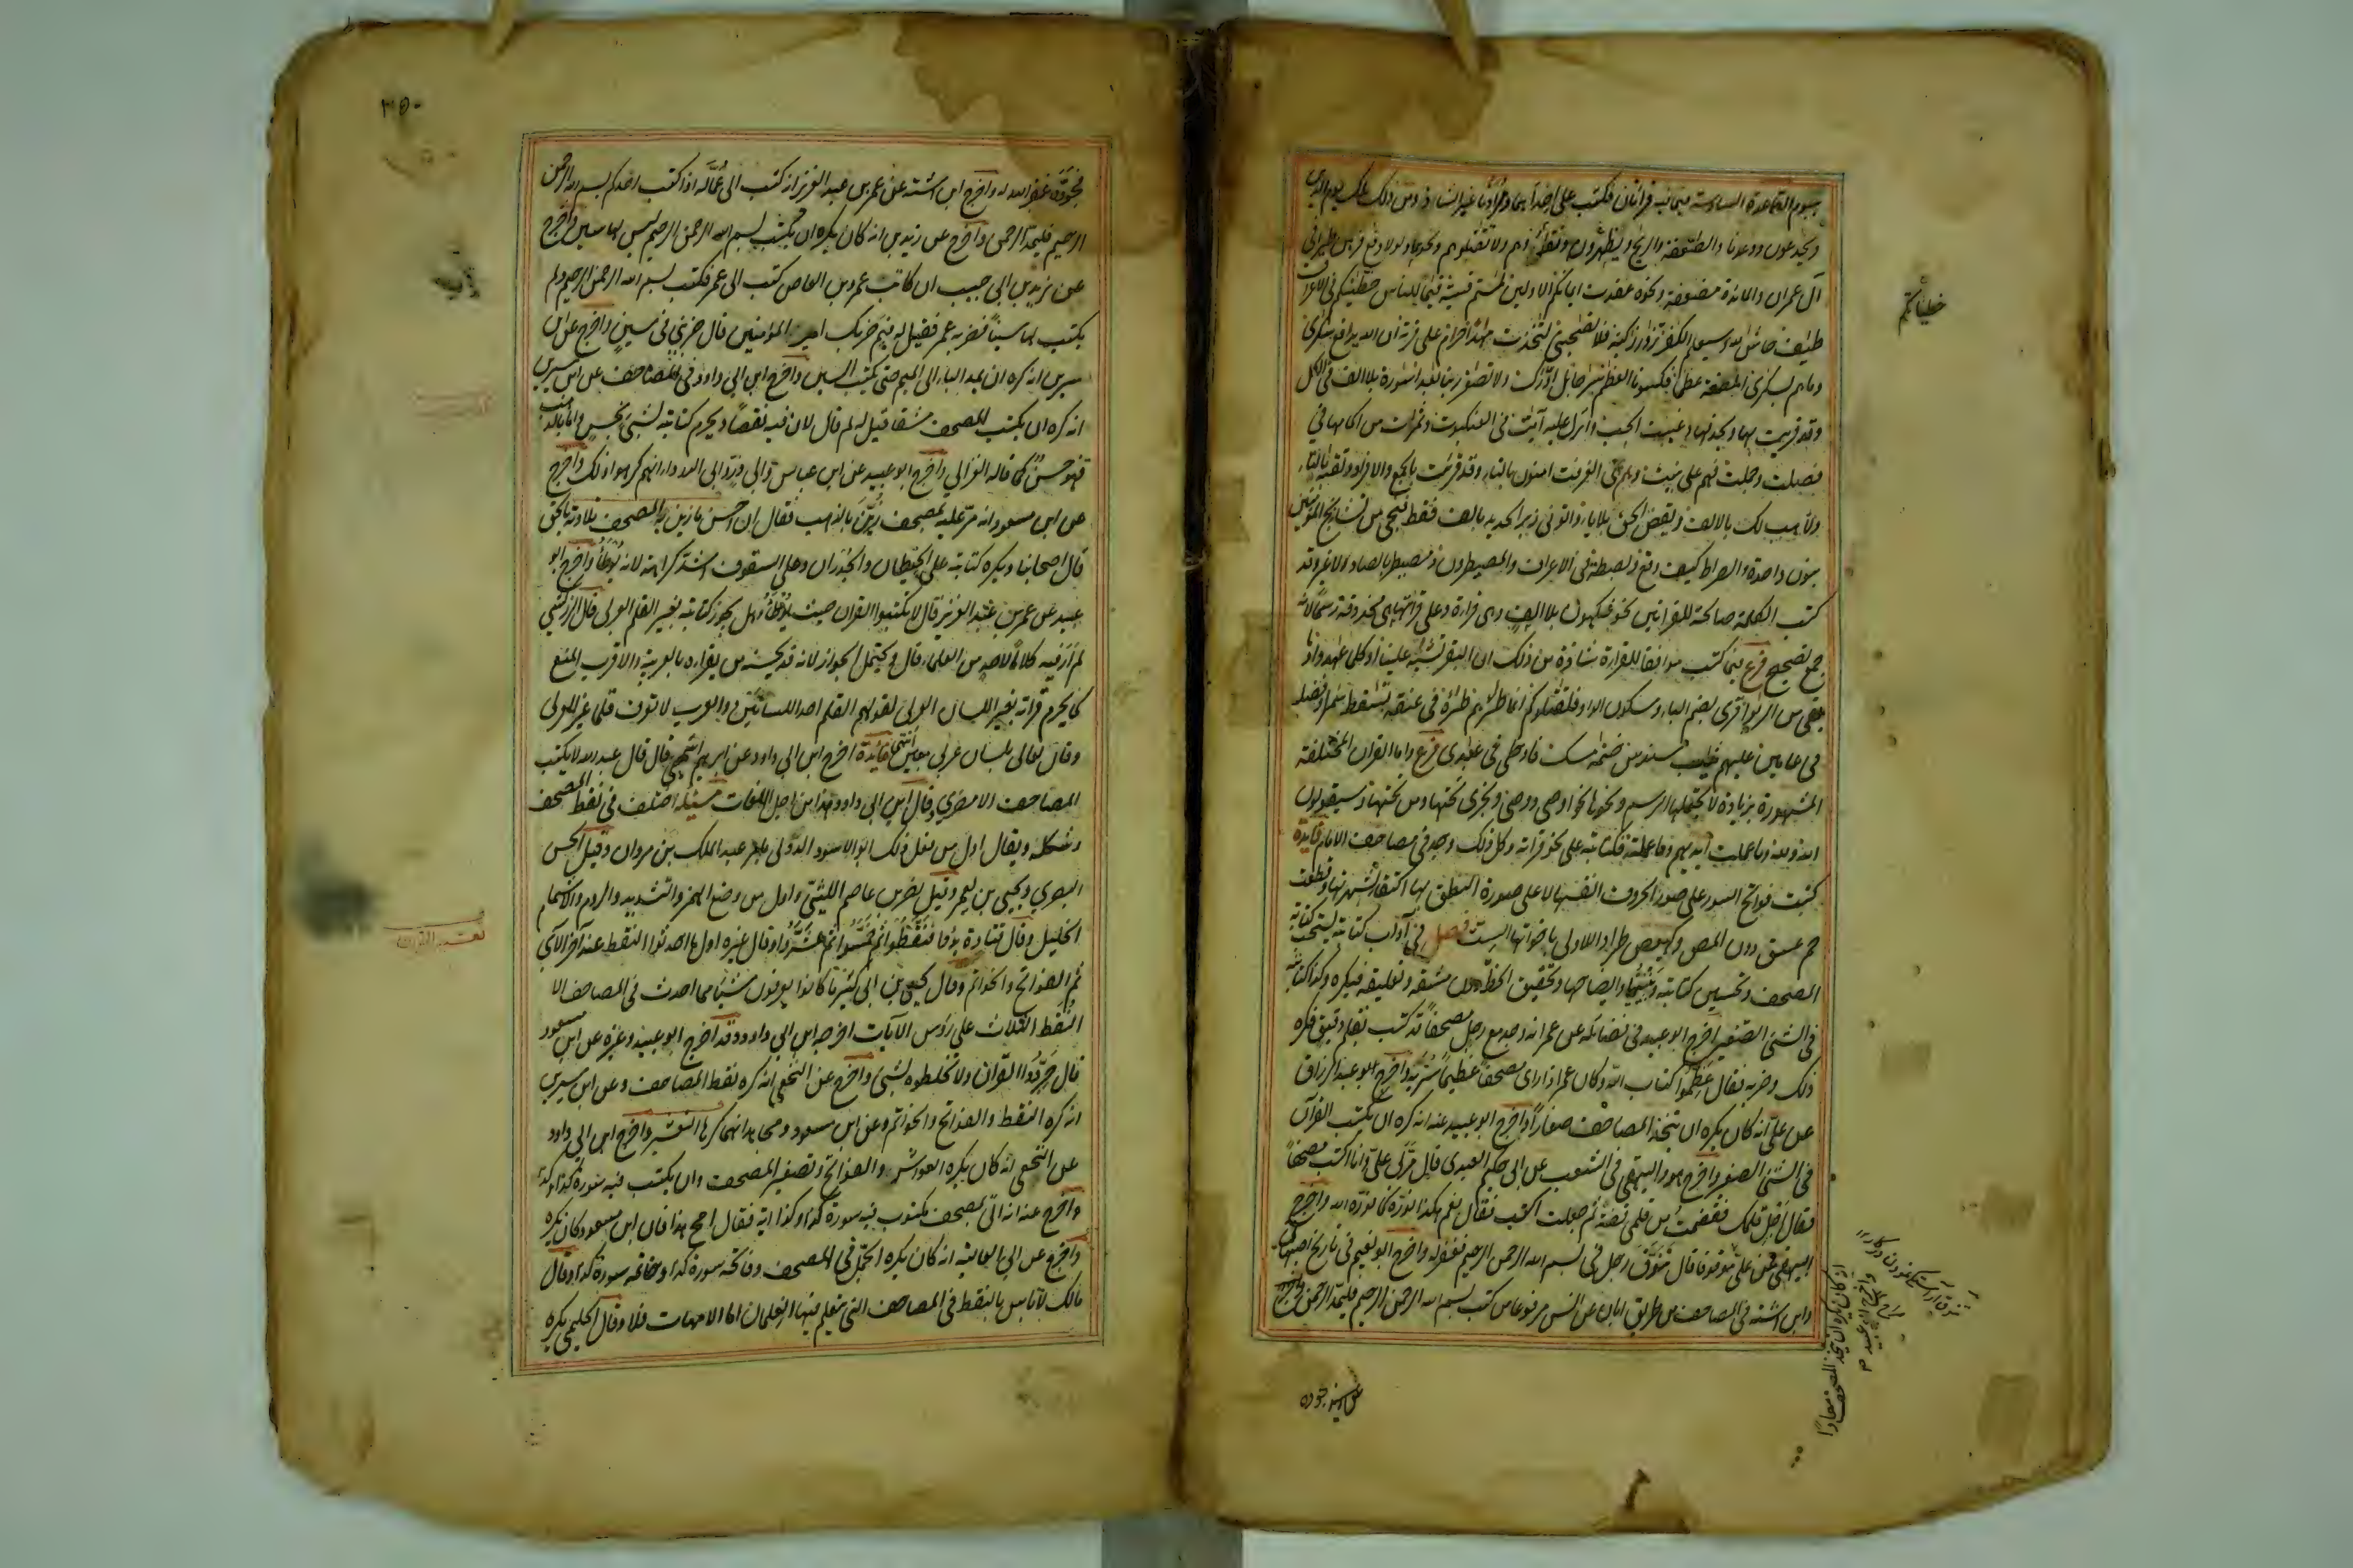 القاعدة السادسة فيما فيه قرائتان فكتب على احداهما ومرادنا غير الشاذ ومن ذلك ملك يوم الدين
ويخدعون ووعدنا والصعقة والريح ويظهرون وتفدوهم ولا تقتلوهم ونحوها ولولا دفع فرهن طيرا في
آل عمران والمائدة مضعفة ونحوه عقدت ايمانكم الاولين لمستم قسية قيما للناس خطيئتكم في الاعراف
طئف حاش لله وسيعلم الكفر تزاور زكية فلا تصحبني لتخذت مهدا وحرام على قرية ان الله يدافع سكرى
وما هم بسكرى المضغة عظما فكسونا العظم سرجا بل ادرك ولا تصعر ربنا بعد اسورة بلا الف في الكل
وقد قريت بها وبحذفها وغيبت الجب وانزل عليه آيت في العنكبوت وثمرت من اكمامها في
فصلت وجملت فهم على بينت وهم في الغرفت امنون بالتاء وقد قرئت بالجمع والافراد وتقية بالياء
ولاهب لك بالالف ويقض الحق بلا ياء واتوني زبر الحديد بالف فقط ننجي من نشاء ننج المؤمنين
بنون واحدة والصراط كيف وقع وبصطة في الاعراف والمصيطرون ومصيطر بالصاد لا غير وقد
كتب الكلمة صالحة للقرائتين نحو فكهون بلا الف وهي قراءة وعلى قرائتها هي محذوفة رسما لانه
جمع تصحيح فرع فيما كتب موافقا للقراءة شاذة من ذلك ان البقر تشبه علينا او كلما عهدوا وما
بقي من الربوا قرئ بضم الباء وسكون الواو فلقتلوكم انما طئرهم طئره في عنقه تسقط سمرا وفصله
في عامين عليهم ثياب سندس ختمه مسك فادخلي في عبدي فرع واما القران المختلفة
المشهورة بزيادة لا يحتملها الرسم ونحوها نحو اوصى ووصى وتجري تحتها ومن تحتها وسيقولون
الله ولله وما عملت ايديهم وما عملته فكتابته على نحو قراته وكل ذلك وجد في مصاحف الامام فايدة
كتبت فواتح السور على صور الحروف انفسها لا على صورة النطق بها اكتفاء لشهرتها وقطعت
حم عسق دون المص وكهيعص طردا للاولى باخواتها الست فصل في آداب كتابته يستحب كتابة
المصحف وتحسين كتابته وتبيينها وايضاحها وتحقيق الخط دون مشقه وتعليقه فيكره وكذا كتابته
في الشئ الصغير اخرج ابو عبيد في فضائله عن عمر انه وجد مع رجل مصحفا قد كتب بقلم دقيق فكره
ذلك وضربه فقال عظموا كتاب الله وكان عمر اذا راى مصحفا عظيما سُرّ به واخرج ابو عبد الرزاق
عن علي انه كان يكره ان تتخذ المصاحف صغارا واخرج ابو عبيد عنه انه كره ان يكتب القرآن
في الشئ الصغير واخرج هو والبيهقي في الشعب عن ابي حكيم العبدي قال مر بي علي وانا اكتب مصحفا
فقال اجل قلمك فقضمت من قلمي قضمة ثم جعلت اكتب فقال نعم هكذا نوره كما نوره الله واخرج
البيهقي عن علي موقوفا قال تنوق رجل في بسم الله الرحمن الرحيم فغفر له واخرج ابو نعيم في تاريخ اصبهان
وابن اشته في المصاحف من طريق ابان عن انس مرفوعا من كتب بسم الله الرحمن الرحيم فليمد الرحمن
خطيئاتكم
انه كان يكره ان يتخذ المصحف صغارا
واخرج ابو عبيد
٣٥٠
مجودة غفر الله له واخرج ابن اشته عن عمر بن عبد العزيز انه كتب الى عماله اذا كتب احدكم بسم الله الرحمن
الرحيم فليمد الرحمن واخرج عن زيد بن انه كان يكره ان يكتب بسم الله الرحمن الرحيم ليس لها سين واخرج
عن يزيد بن ابي حبيب ان كاتب عمرو بن العاص كتب الى عمر فكتب بسم الله الرحمن الرحيم ولم
يكتب لها سينا فضربه عمر فقيل له فيم ضربك امير المؤمنين قال ضربني في سين واخرج عن ابن
سيرين انه كره ان يمد الباء الى الميم حتى يكتب السين واخرج ابن ابي داود في المصاحف عن ابن سيرين
انه كره ان يكتب المصحف مشقا قيل له لم قال لان فيه نقصا ويحرم كتابته بشئ نجس واما بالذهب
فهو حسن كما قاله الغزالي واخرج ابو عبيد عن ابن عباس وابي ذر وابي الدرداء انهم كرهوا ذلك واخرج
عن ابن مسعود انه مر عليه بمصحف زين بالذهب فقال ان احسن ما زين به المصحف تلاوته بالحق
قال اصحابنا ويكره كتابته على الحيطان والجدران وعلى السقوف اشد كراهة لانه يوطأ واخرج ابو
عبيد عن عمر بن عبد العزيز قال لا تكتبوا القران حيث يوطأ وهل يجوز كتابته بغير القلم العربي قال الزركشي
لم ار فيه كلاما لاحد من العلماء قال ويحتمل الجواز لانه قد يحسنه من يقراه بالعربية والاقرب المنع
كما يحرم قراته بغير اللسان العربي لقولهم القلم احد اللسانين والعرب لا تعرف قلما غير العربي
وقال تعالى بلسان عربي مبين انتهى فايدة اخرج ابن ابي داود عن ابرهيم التيمي قال قال عبد الله لا يكتب
المصاحف الا مضري وقال ابن ابي داود هذا من اجل اللغات مسئلة اختلف في نقط المصحف
وشكله ويقال اول من فعل ذلك ابو الاسود الدؤلي بامر عبد الملك بن مروان وقيل الحسن
البصري ويحيى بن يعمر وقيل نصر بن عاصم الليثي واول من وضع الهمز والتشديد والروم والاشمام
الخليل وقال قتادة بدؤا فنقطوا ثم خمسوا ثم عشروا وقال غيره اول ما احدثوا النقط عند آخر الآي
ثم الفواتح والخواتم وقال يحيى بن ابي كثير ما كانوا يعرفون شيئا مما احدث في المصاحف الا
النقط الثلاث على رؤس الآيات اخرجه ابن ابي داود وقد اخرج ابو عبيد وغيره عن ابن مسعود
قال جردوا القران ولا تخلطوه بشئ واخرج عن النخعي انه كره نقط المصاحف وعن ابن سيرين
انه كره النقط والفواتح والخواتم وعن ابن مسعود ومجاهد انهما كرها التعشير واخرج ابن ابي داود
عن النخعي انه كان يكره العواشر والفواتح وتصغير المصحف وان يكتب فيه سورة كذا وكذا
واخرج عنه انه اتي بمصحف مكتوب فيه سورة كذا وكذا اية فقال امح هذا فان ابن مسعود كان يكره
واخرج عن ابي العالية انه كان يكره الجمل في المصحف وفاتحة سورة كذا وخاتمة سورة كذا وقال
مالك لا باس بالنقط في المصاحف التي يتعلم فيها الغلمان اما الامهات فلا وقال الحليمي يكره